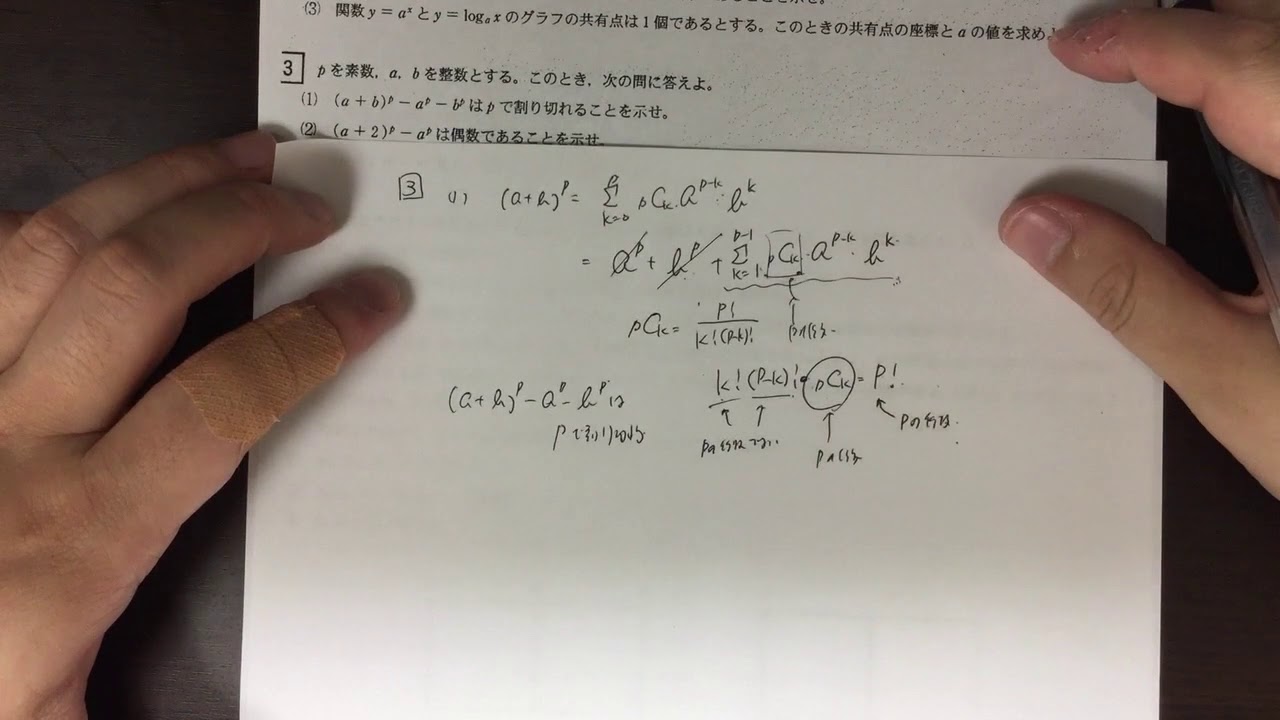 (3) 関数 y = aˣ と y = logₐx のグラフの共有点は1個であるとする。このときの共有点の座標と a の値を求め
3 p を素数, a, b を整数とする。このとき, 次の問に答えよ。
(1) (a + b)ᵖ − aᵖ − bᵖ は p で割り切れることを示せ。
(2) (a + 2)ᵖ − aᵖ は偶数であることを示せ.
3 (1) (a+b)^p = Σ_{k=0}^{p} pCk・a^{p-k}・b^k
= a^p + b^p + Σ_{k=1}^{p-1} pCk・a^{p-k}・b^k
pCk = p!/k!(p-k)! pの倍数
k!(p-k)!・pCk = p!
(a+b)^p − a^p − b^p は
pの倍数
pで割り切れる
pの倍数でない
pの倍数